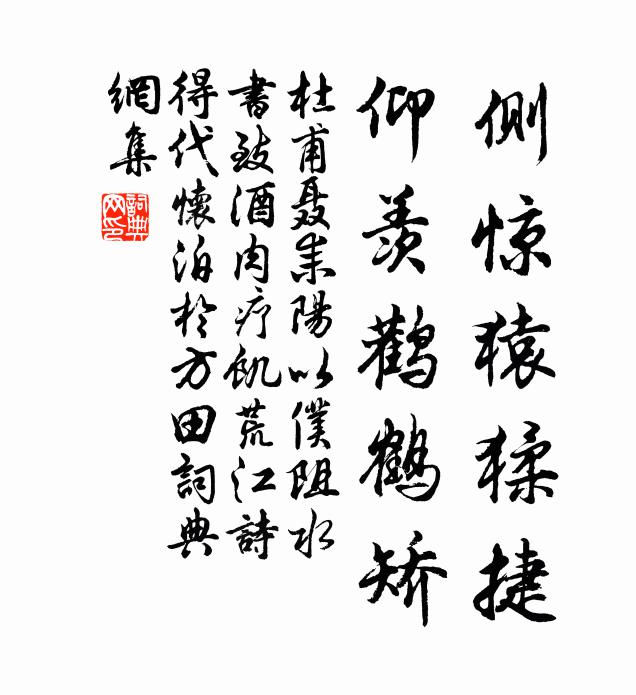 侧惊猿猱捷
仰羡鹳鹤矫
杜甫聂耒陽以僕阻水
書致酒肉疗飢荒江詩
得代懷泊於方田詞典
網集
詞典
网印